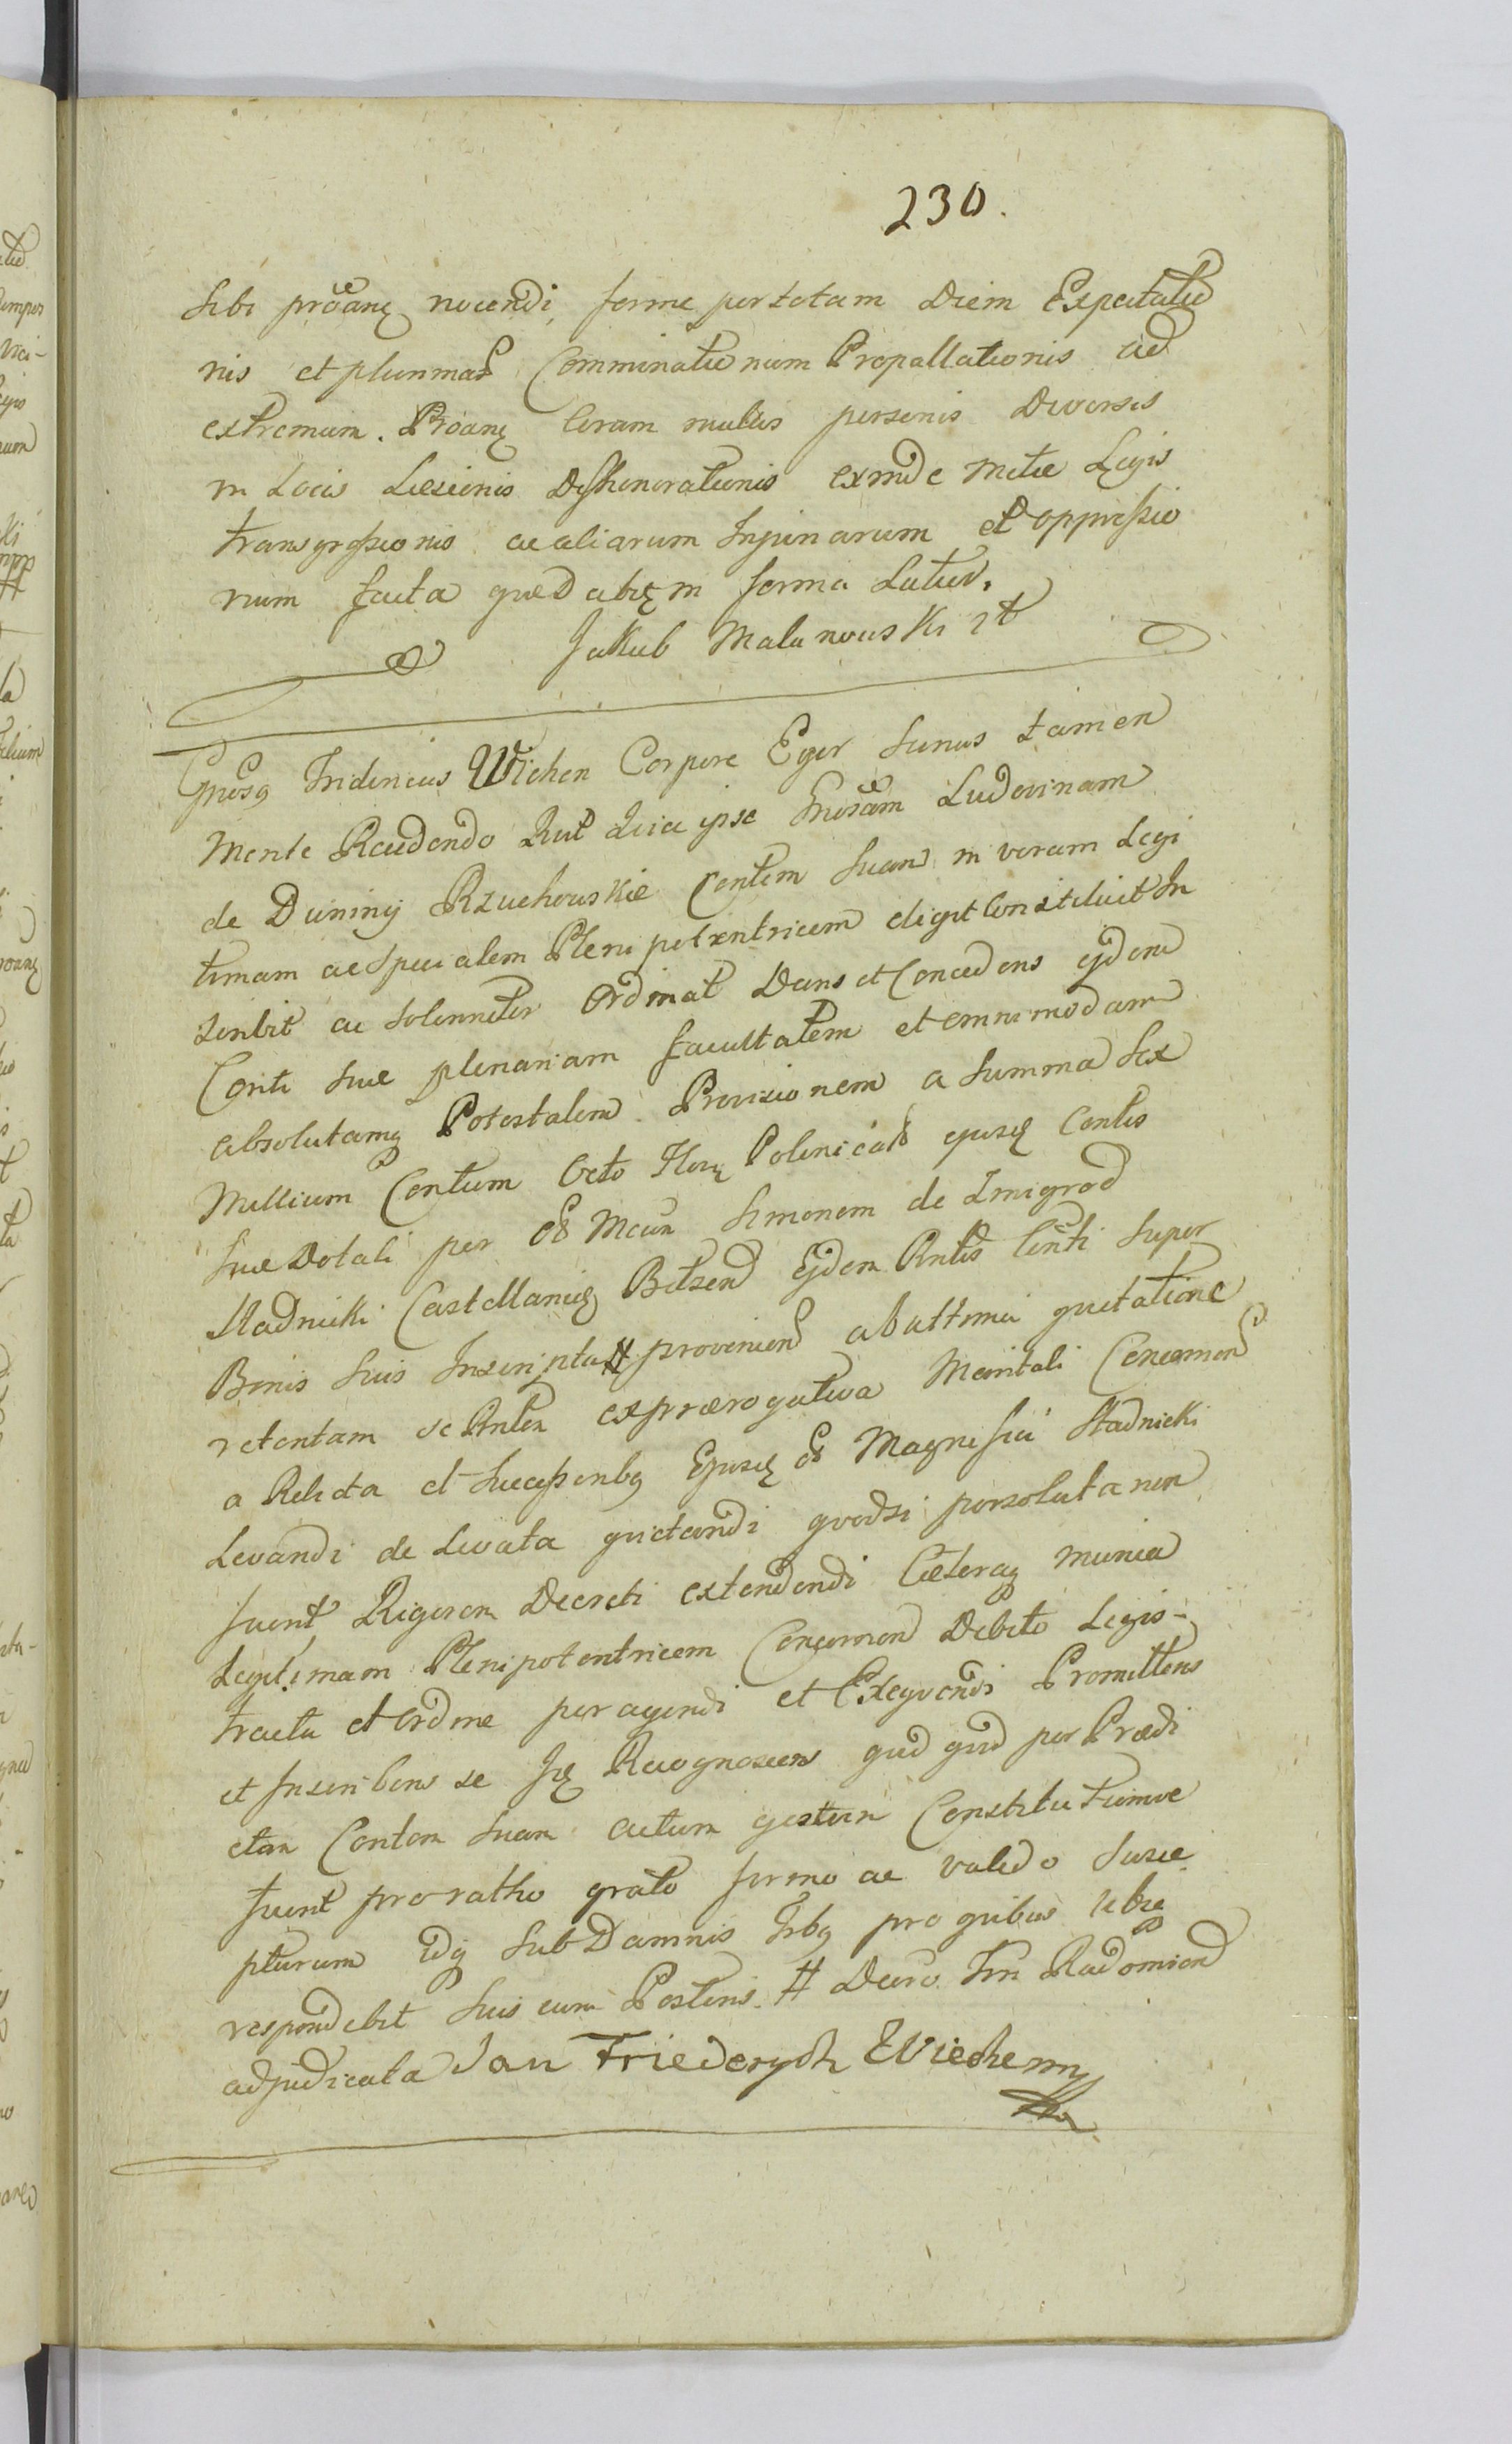 230.
sibi pröanę nocendi, ferme per totam Diem Expectatio
nis et plurimas Comminationum Propallationis ad
extremum. Pröanę Coram multis personis Diversis
in Locis Læsionis Dishonorationis exinde metæ Legis
transgressionis ac aliarum Injuriarum et oppressio
num facta quæ Dabitę in forma Latius.
Jakub Malanowski
Gnosq Fridericus Wichen Corpore Eger Sanus tamen
mente Reced​endo Rut Jccia ipse Gnosam Ludovinam
de Duniny Rzuchowskie Contem Suam in veram Legi
timam ac Specialem Plenipotentricem eligit Constituit In
scribit ac solenniter Ordinat Dans et Concedens ejdem
Conti suæ plenariam facultatem et omnimodam
absolutamq Potestatem Provisionem a Summa Sex
Millium Centum Octo Florę Polonicas ejusę Contis
suæ Dotali per Mcum Simonem de Zmigrod
Stadnicki Castellanicę Belzen Ejdem Rntis Conti Super
Bonis suis Inscripta # provenien ab attinui quietatione
retentam se Rnten ex prærogativa Maritali Concernen
a Relicta et Successoribq Ejusę Magnifici Stadnicki
Levandi de Levata quietandi quodsi persoluta non
fuerit Rigorem Decreti extendendi Cæteraq munia
Legitimam Plenipotentricem Concernen Debito Legis-
tractu et ordine peragendi et Exequendi Promittens
et Inscribens se Recognoscens quid quid per Prædi
ctam Contem Suam actum gestum Constitutumve
fuerit pro ratho grato firmo ac valido susce
pturum idq sub Damnis Trbq pro quibus ubię
respondebit suis cum Posteris. # Decro Trn Radomien
adjudicata Jan Friederych Wiechenn